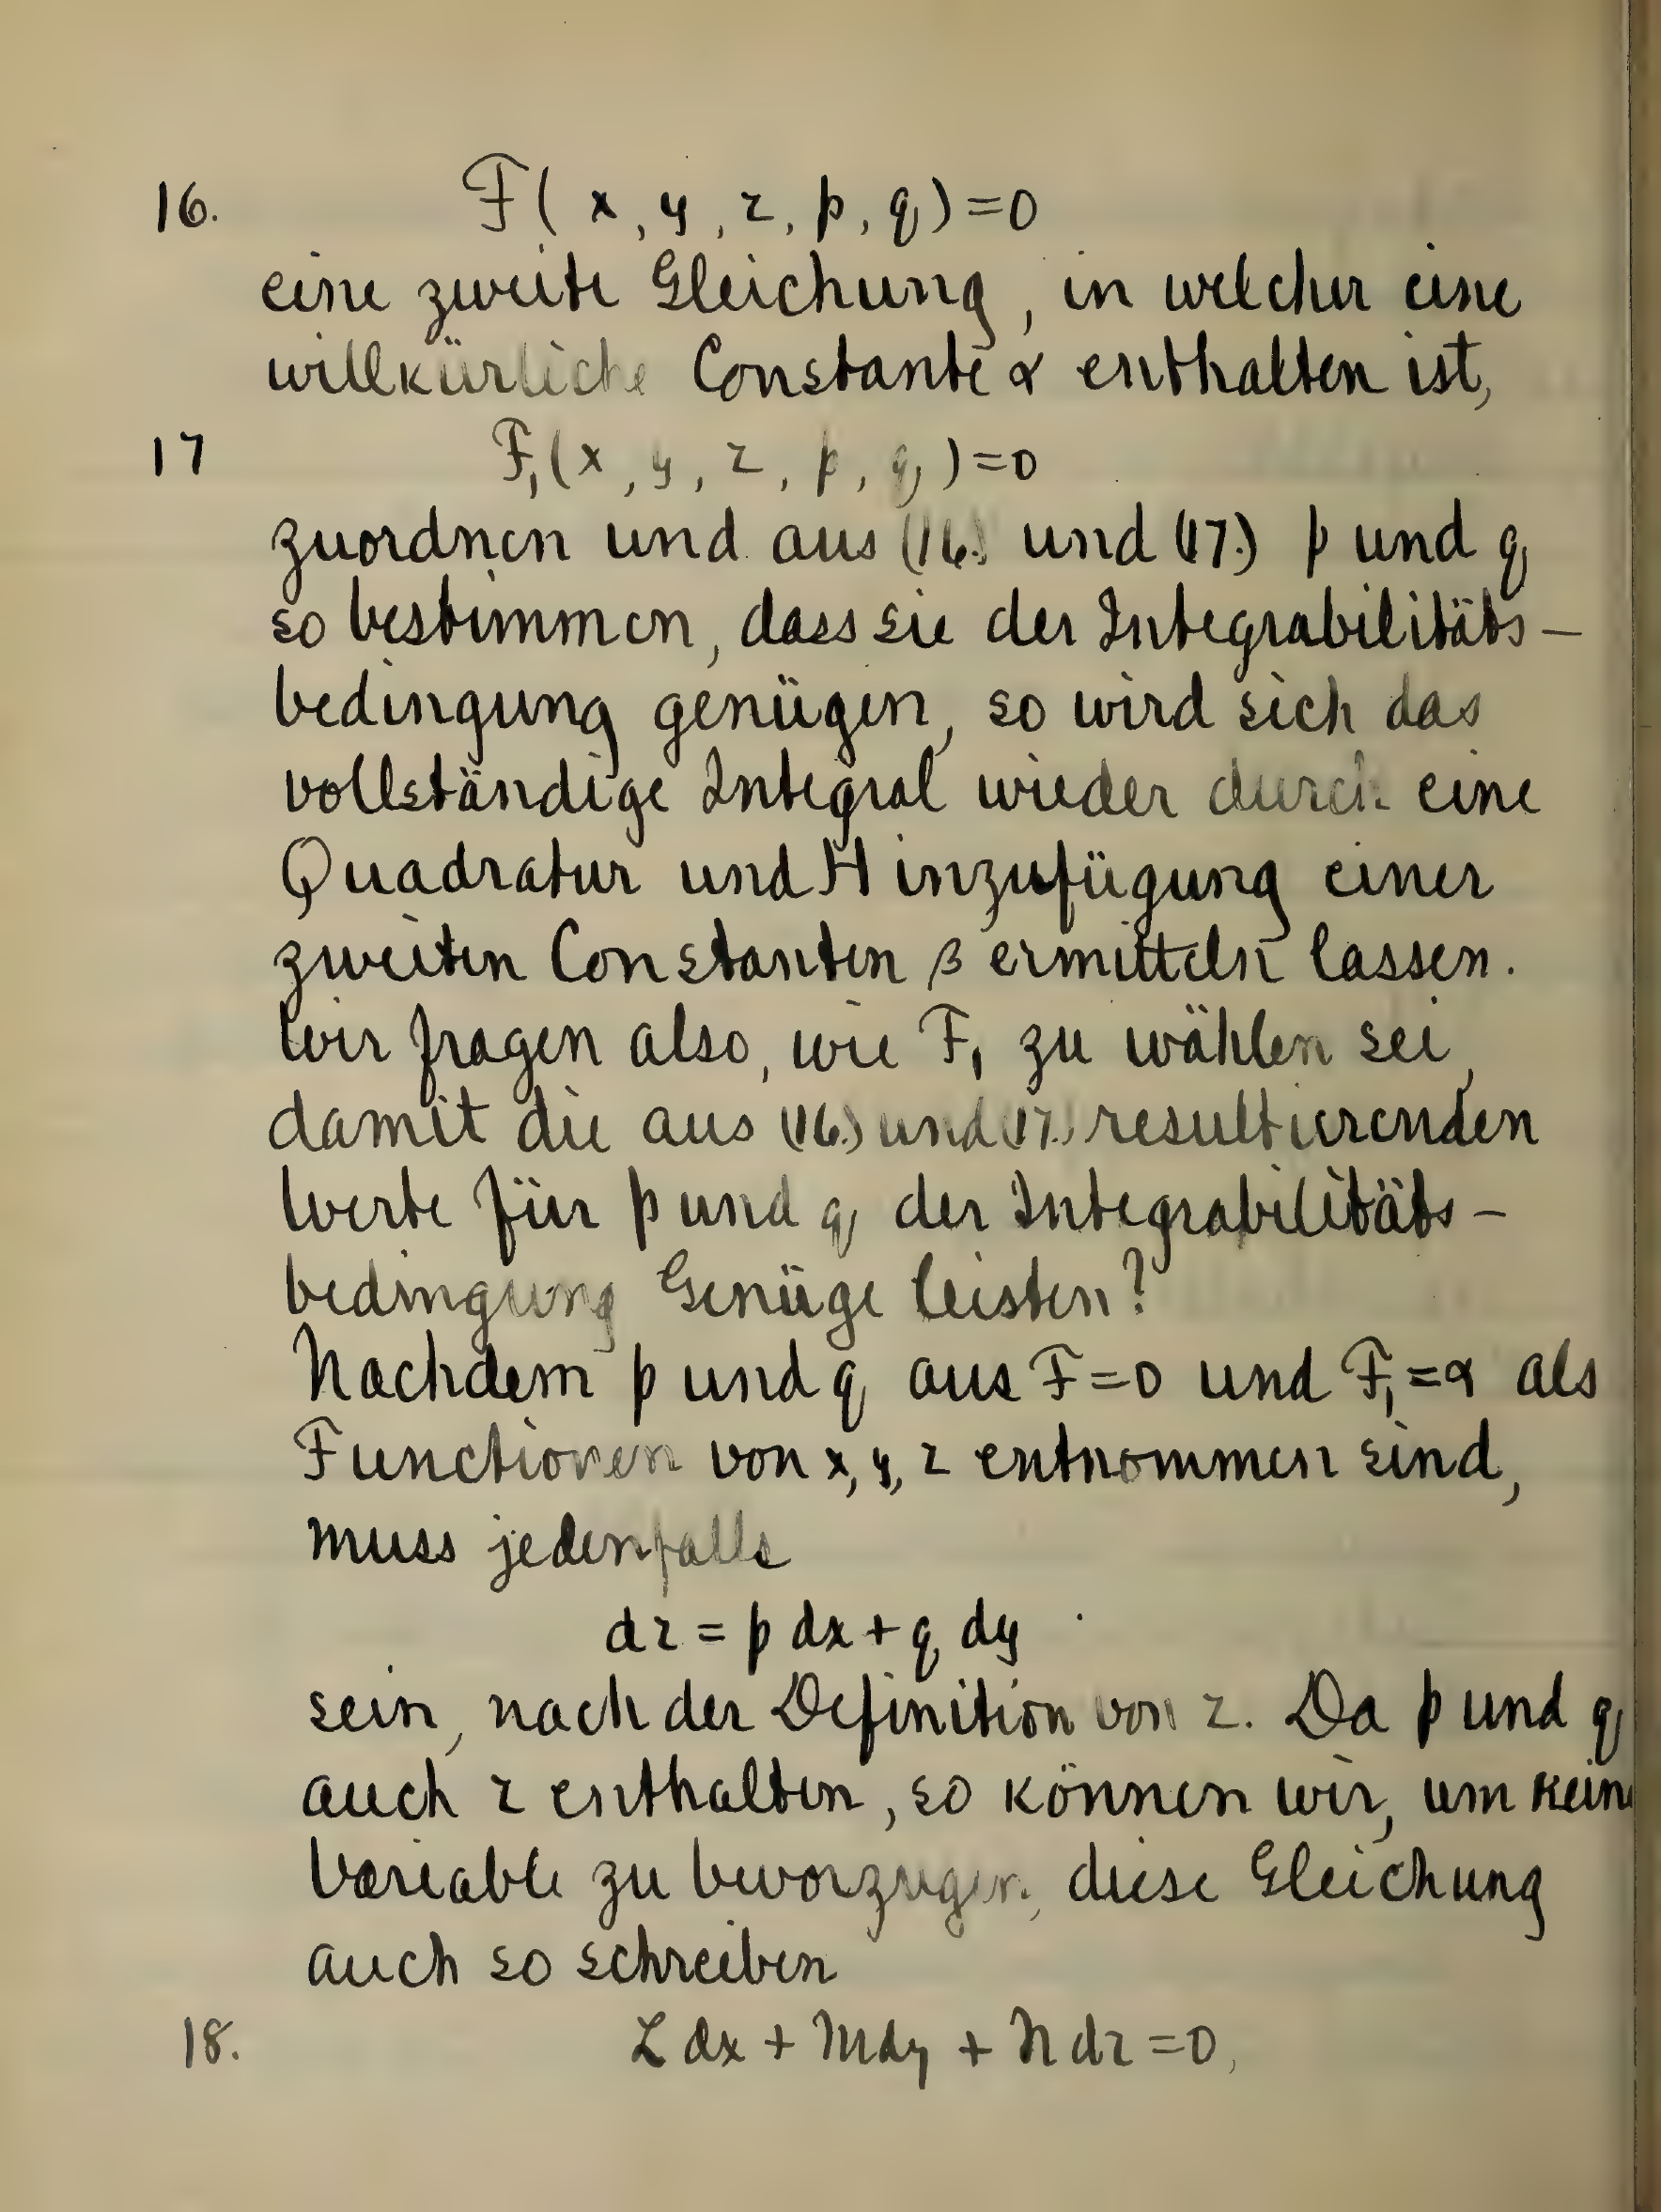 16. F(x, y, z, p, q)=0
eine zweite Gleichung, in welcher eine
willkürliche Constante α enthalten ist,
17 F₁(x, y, z, p, q)=0
zuordnen und aus (16.) und (17.) p und q
so bestimmen, dass sie der Integrabilitäts-
bedingung genügen, so wird sich das
vollständige Integral wieder durch eine
Quadratur und Hinzufügung einer
zweiten Constanten β ermitteln lassen.
Wir fragen also, wie F₁ zu wählen sei,
damit die aus (16.) und (17.) resultierenden
Werte für p und q der Integrabilitäts-
bedingung Genüge leisten?
Nachdem p und q aus F=0 und F₁=α als
Functionen von x, y, z entnommen sind,
muss jedenfalls
dz = p dx + q dy
sein, nach der Definition von z. Da p und q
auch z enthalten, so können wir, um keine
Variable zu bevorzugen, diese Gleichung
auch so schreiben
18. L dx + M dy + N dz = 0,